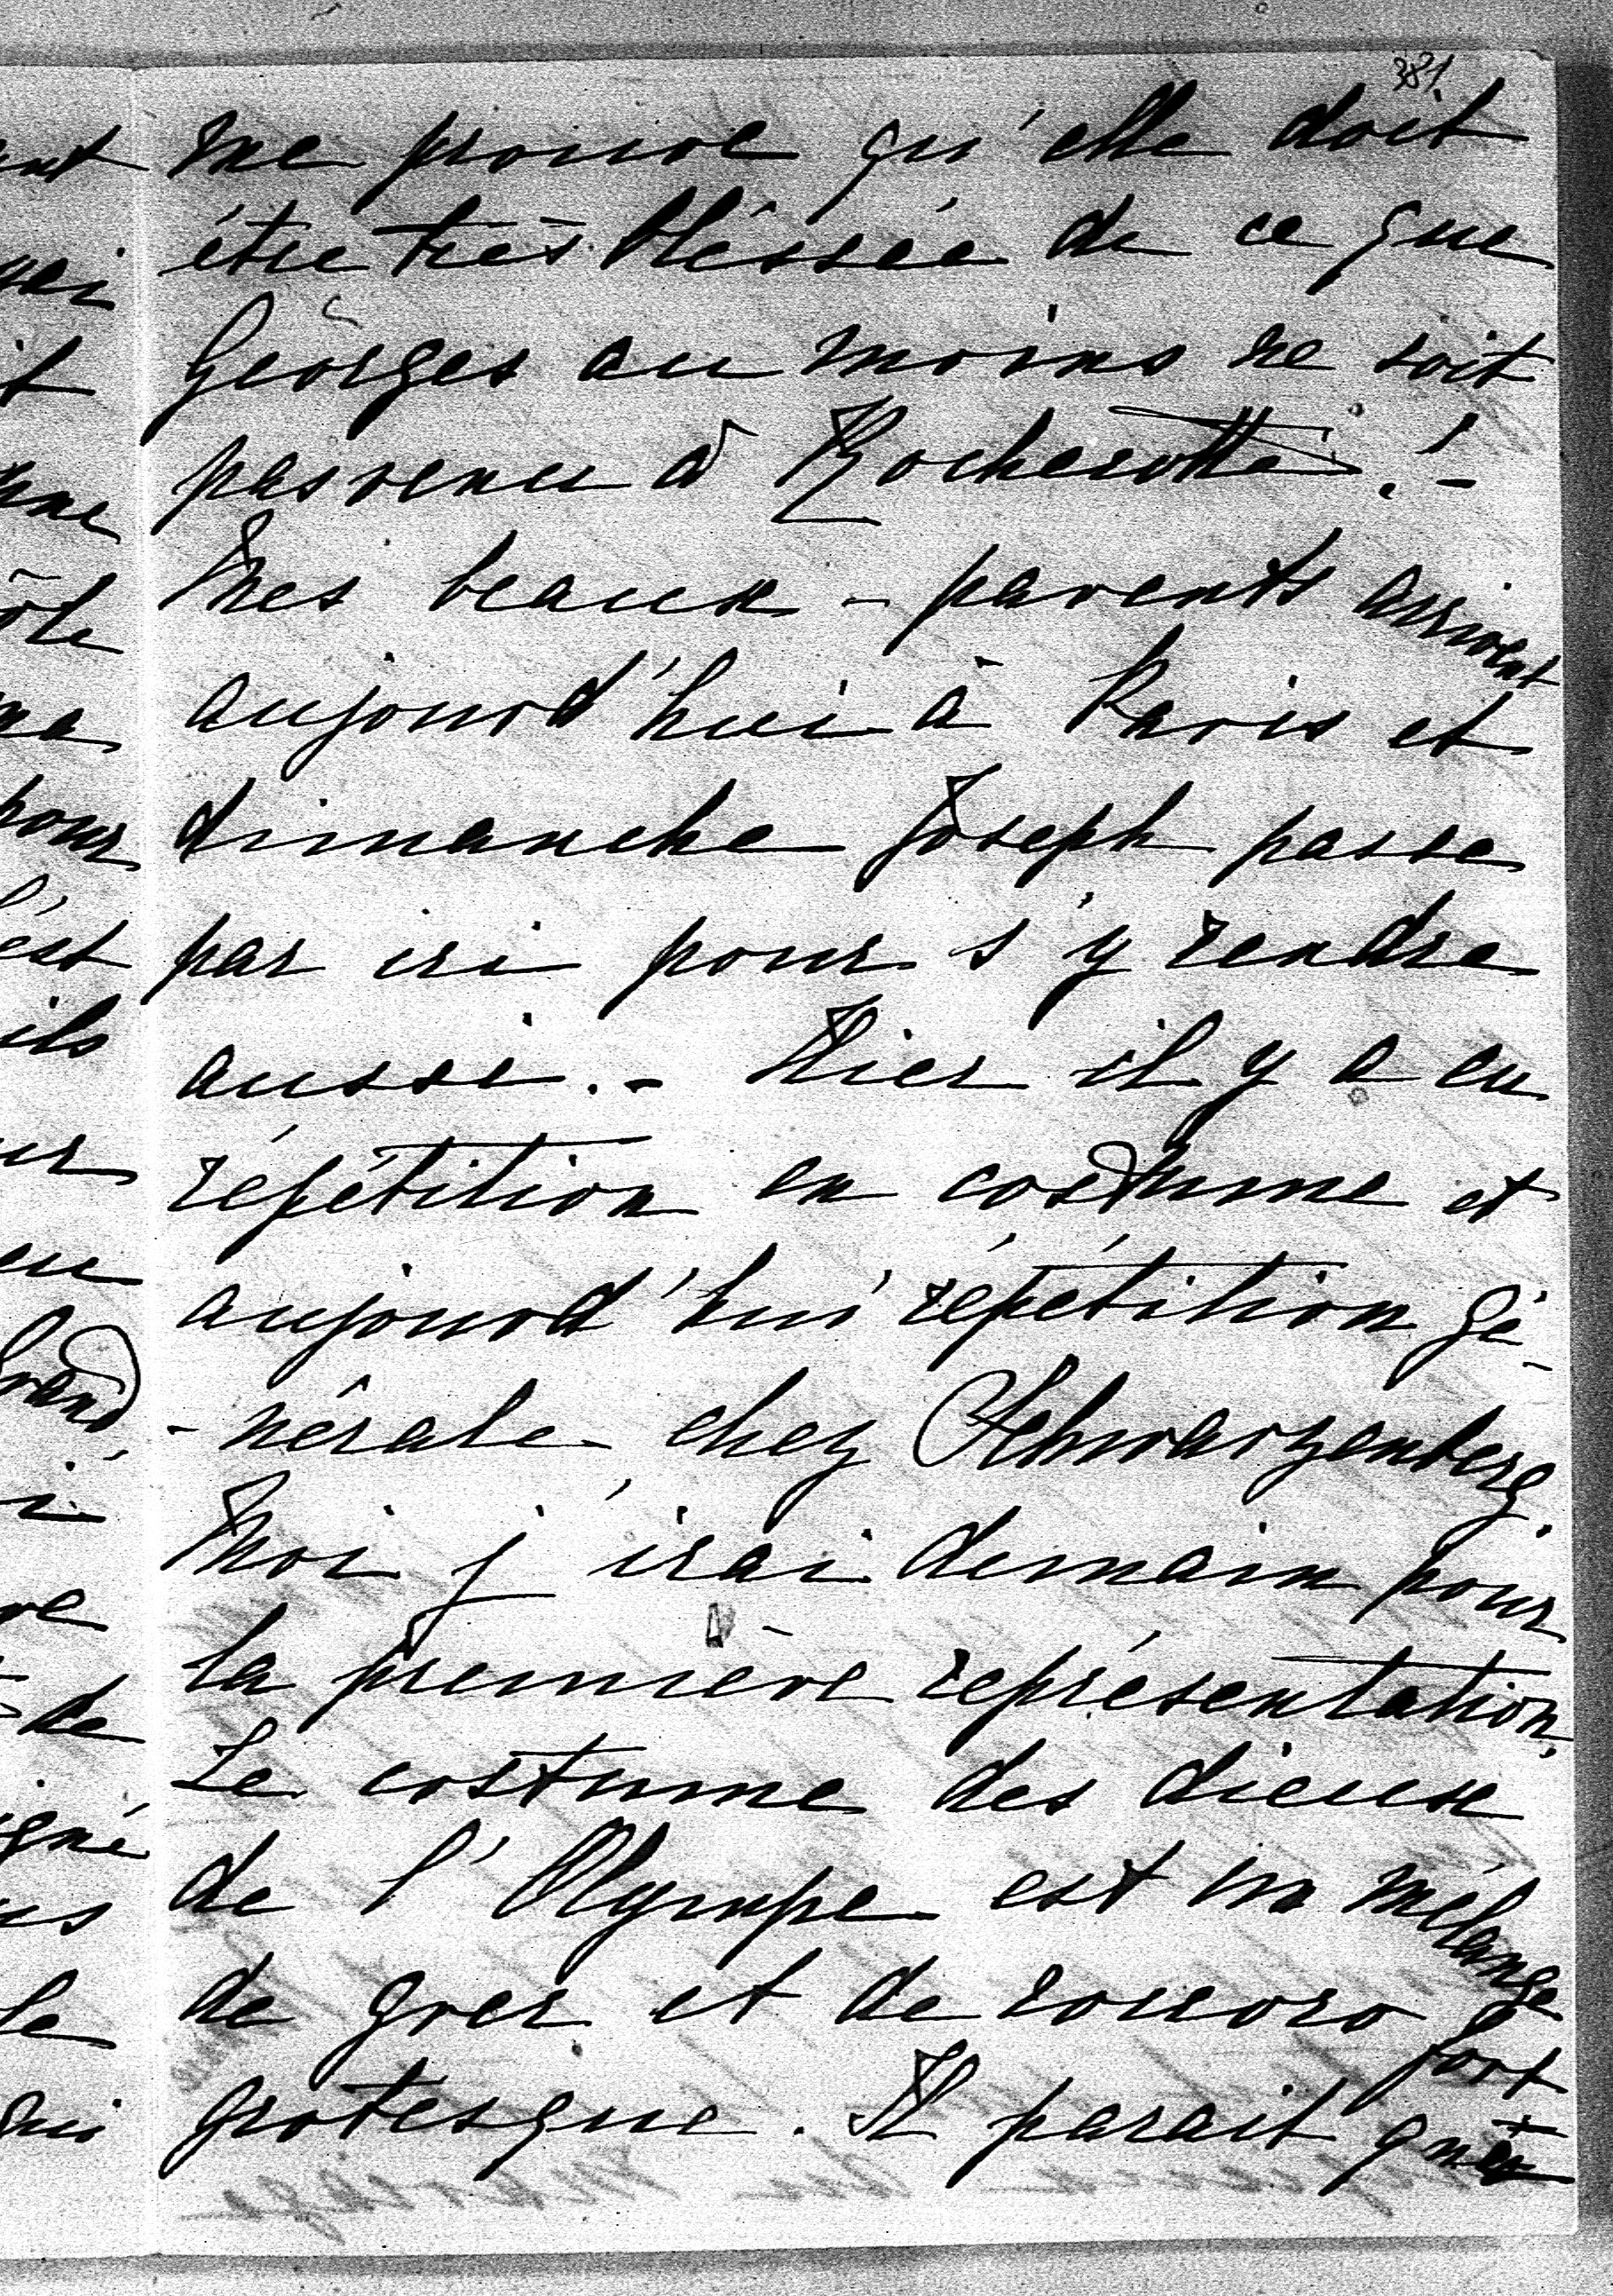 381.
me prouve qu'elle doit
être très bléssée de ce que
Georges au moins ne soit
pas venu à Rocherotte.! -
Mes beaux-parents arrivent
aujourd'hui à Paris et
dimanche Joseph passe
par ici pour s'y rendre
aussi. - Hier il y a eu
répétition en costume et
aujourd'hui répétition gé-
-nérale chez Schwarzenberg.
Moi j'irai demain pour
la première représentation.
Le costume des dieux
de l'Olympe est un mélange
de grec et de rococo fort
grotesque. Il parait